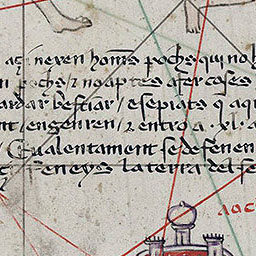 açi nexen homs pochs qui no h
n pochs / e no aptes a fer coses
ardar bestiar / e sepiats q aqu
nt / engenren / e entro a · xl · a
/ Eualentament se defenen
feneys la terra del se